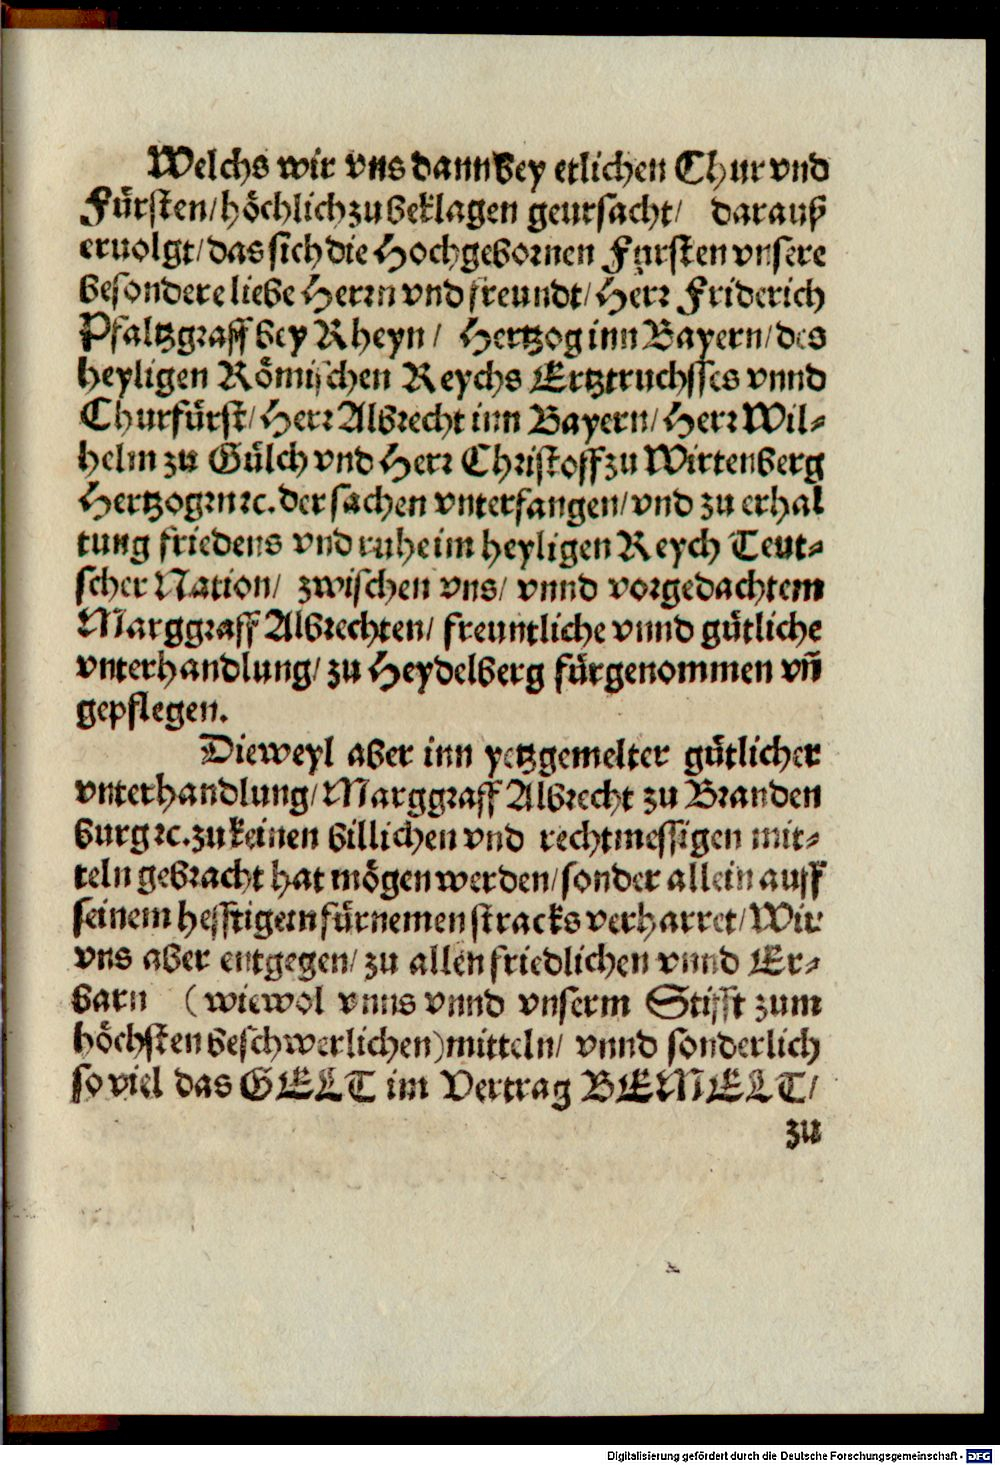 Welchs wir vns dann bey etlichen Chur vnd
Fürsten/ höchlich zu beklagen geursacht/ darauß
eruolgt/ das sich die Hochgebornen Fürsten vnsere
besondere liebe Herrn vnd freundt/ Herr Friderich
Pfaltzgraff bey Rheyn/ Hertzog inn Bayern/ des
heyligen Römischen Reychs Ertztruchsses vnnd
Churfürst/ Herr Albrecht inn Bayern/ Herr Wil-
helm zu Gülch vnd Herr Christoff zu Wirtenberg
Hertzogen ꝛc. der sachen vnterfangen/ vnd zu erhal
tung friedens vnd ruhe im heyligen Reych Teut-
scher Nation/ zwischen vns/ vnnd vorgedachtem
Marggraff Albrechten/ freuntliche vnnd gütliche
vnterhandlung/ zu Heydelberg fürgenommen vñ
gepflegen.
Dieweyl aber inn yetzgemelter gütlicher
vnterhandlung/ Marggraff Albrecht zu Branden
burg ꝛc. zu keinen billichen vnd rechtmessigen mit-
teln gebracht hat mögen werden/ sonder allein auff
seinem hefftigem fürnemen stracks verharret/ Wir
vns aber entgegen/ zu allen friedlichen vnnd Er-
barn (wiewol vnns vnnd vnserm Stifft zum
höchsten beschwerlichen) mitteln/ vnnd sonderlich
so viel das GELT im Vertrag BEMELT/
zu
Digitalisierung gefördert durch die Deutsche Forschungsgemeinschaft - DFG